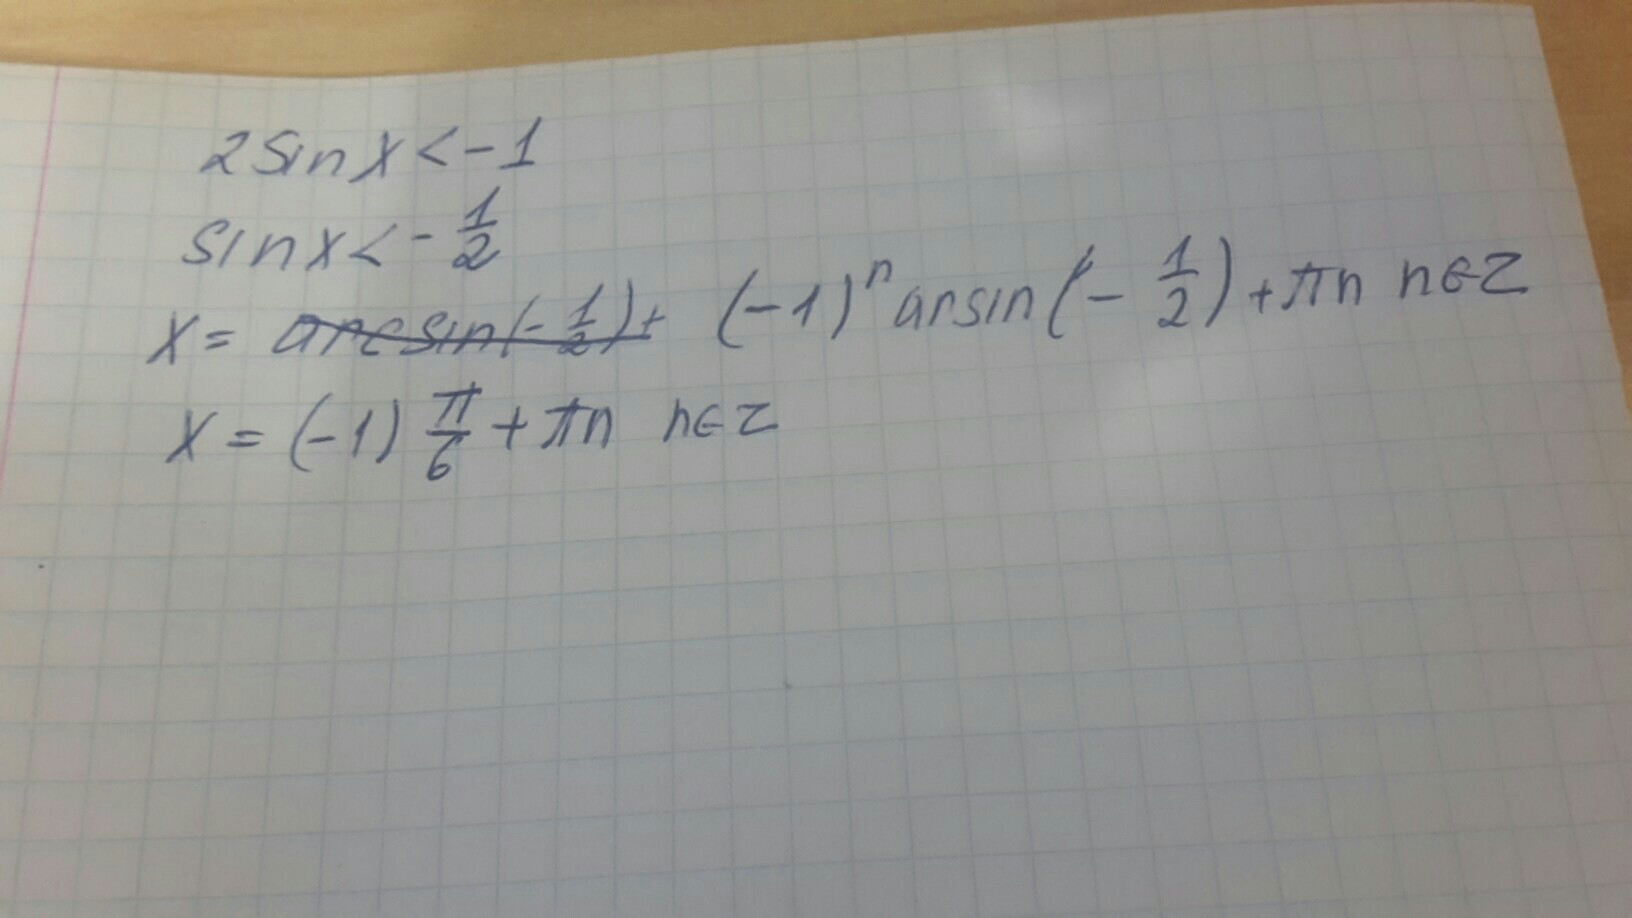 2sinx<-1
sinx<-1/2
x= arcsin(-1/2)+ (-1)ⁿ arsin(-1/2)+πn n∈Z
x=(-1) π/6+πn n∈Z